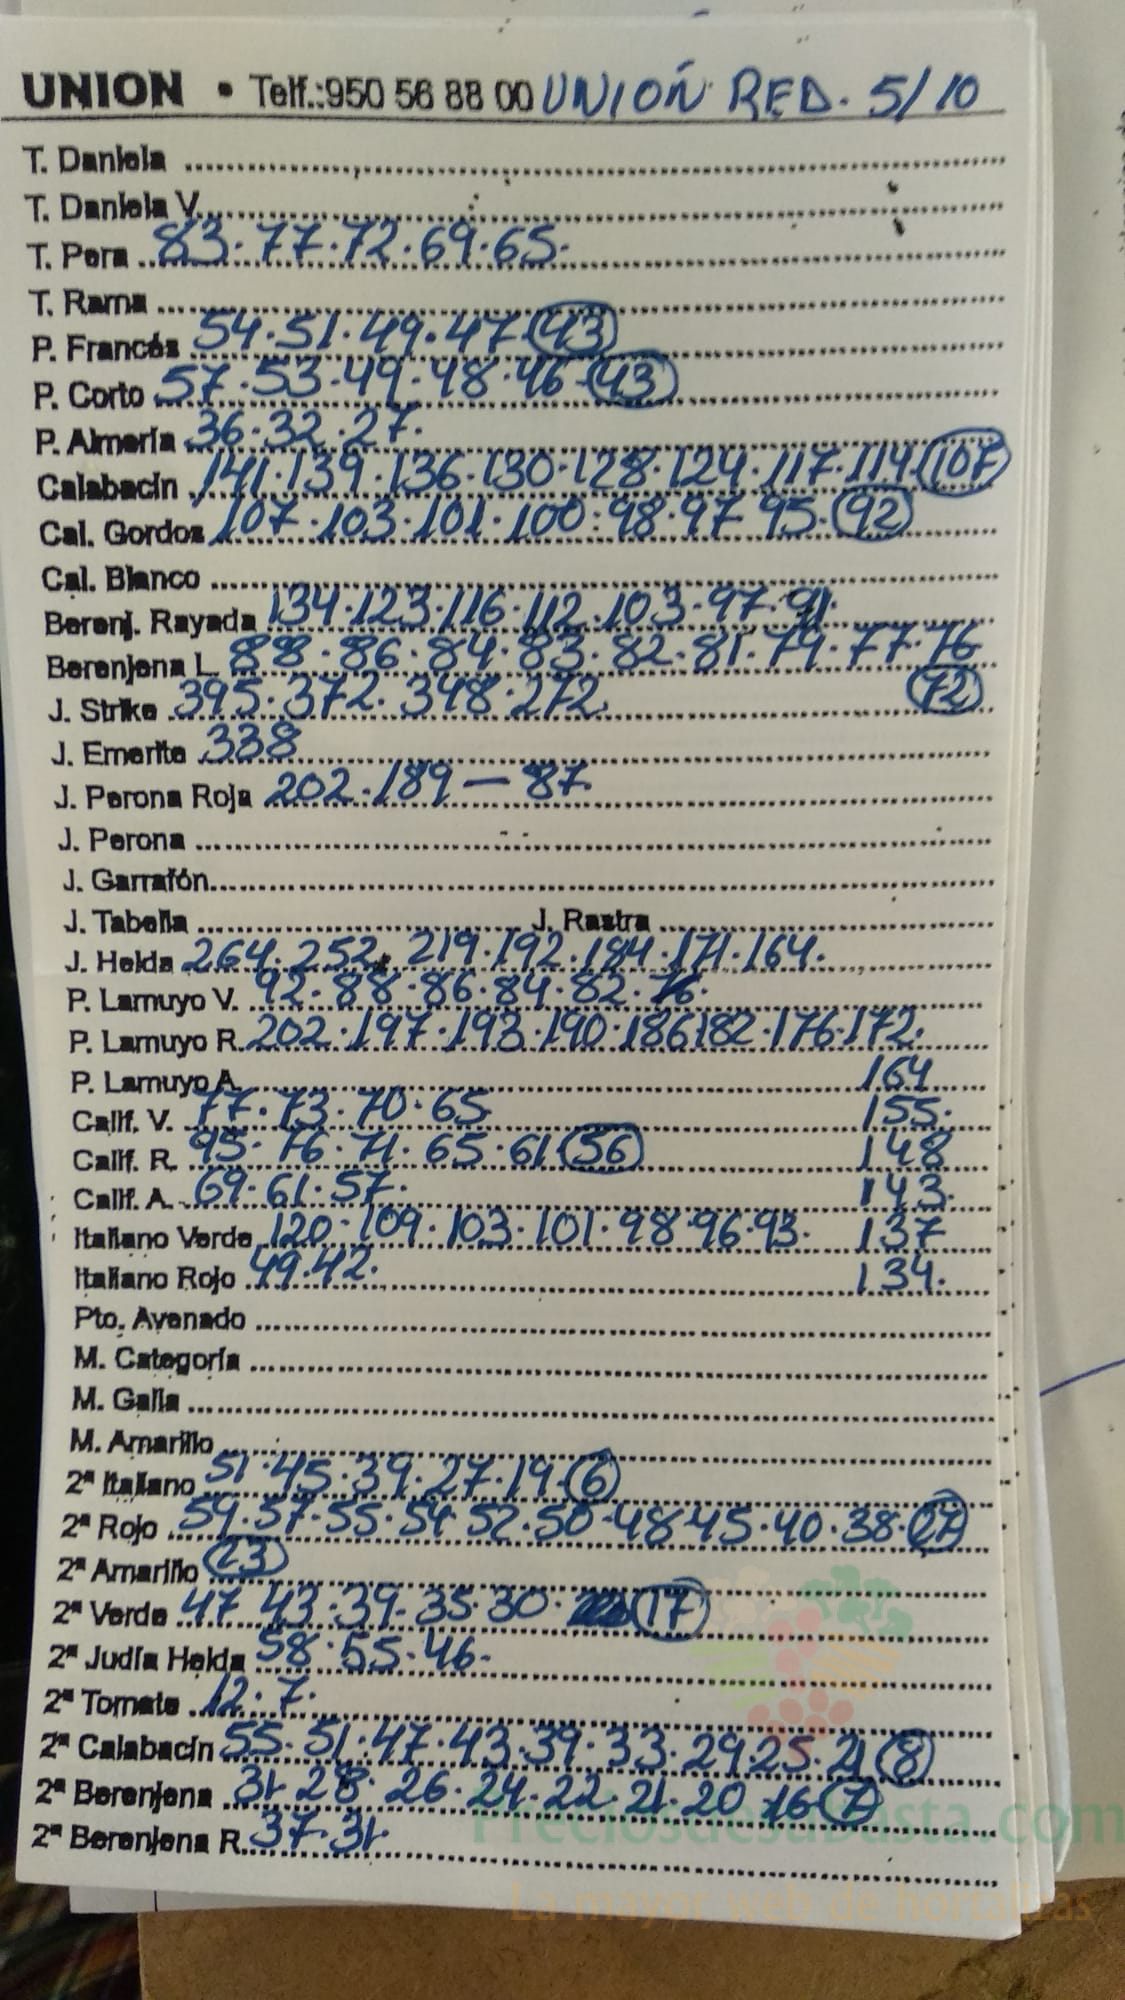 UNION • Telf.:950 56 88 00 UNIÓN RED. 5/10
T. Daniela
T. Daniela V.
T. Pera 83·77·72·69·65·
T. Rama
P. Francés 54·51·49·47·43
P. Corto 57·53·49·48·46·43
P. Almería 36·32·27·
Calabacín 141·139·136·130·128·124·117·114·107
Cal. Gordos 107·103·101·100·98·97·95·92
Cal. Blanco
Berenj. Rayada 134·123·116·112·103·97·91·
Berenjena L. 88·86·84·83·82·81·79·77·76
72
J. Strike 395·372·348·272·
J. Emerite 338
J. Perona Roja 202·189—87·
J. Perona
J. Garrafón
J. Tabella J. Rastra
J. Helda 264·252·219·192·184·171·164·
P. Lamuyo V. 92·88·86·84·82·76·
P. Lamuyo R. 202·197·193·190·186·182·176·172·
P. Lamuyo A. 164
Calif. V. 77·73·70·65 155·
Calif. R. 95·76·71·65·61·56 148
Calif. A. 69·61·57· 143·
Italiano Verde 120·109·103·101·98·96·93· 137
Italiano Rojo 49·42· 134·
Pto. Avenado
M. Categoría
M. Galia
M. Amarillo
2ª Italiano 51·45·39·27·19·6
2ª Rojo 59·57·55·54·52·50·48·45·40·38·27
2ª Amarillo 23
2ª Verde 47·43·39·35·30· 17
2ª Judía Helda 58·55·46·
2ª Tomate 12·7·
2ª Calabacín 55·51·47·43·39·33·29·25·21·8
2ª Berenjena 31·28·26·24·22·21·20·16·7
2ª Berenjena R. 37·31·
Preciosdesubasta.com
La mayor web de hortalizas